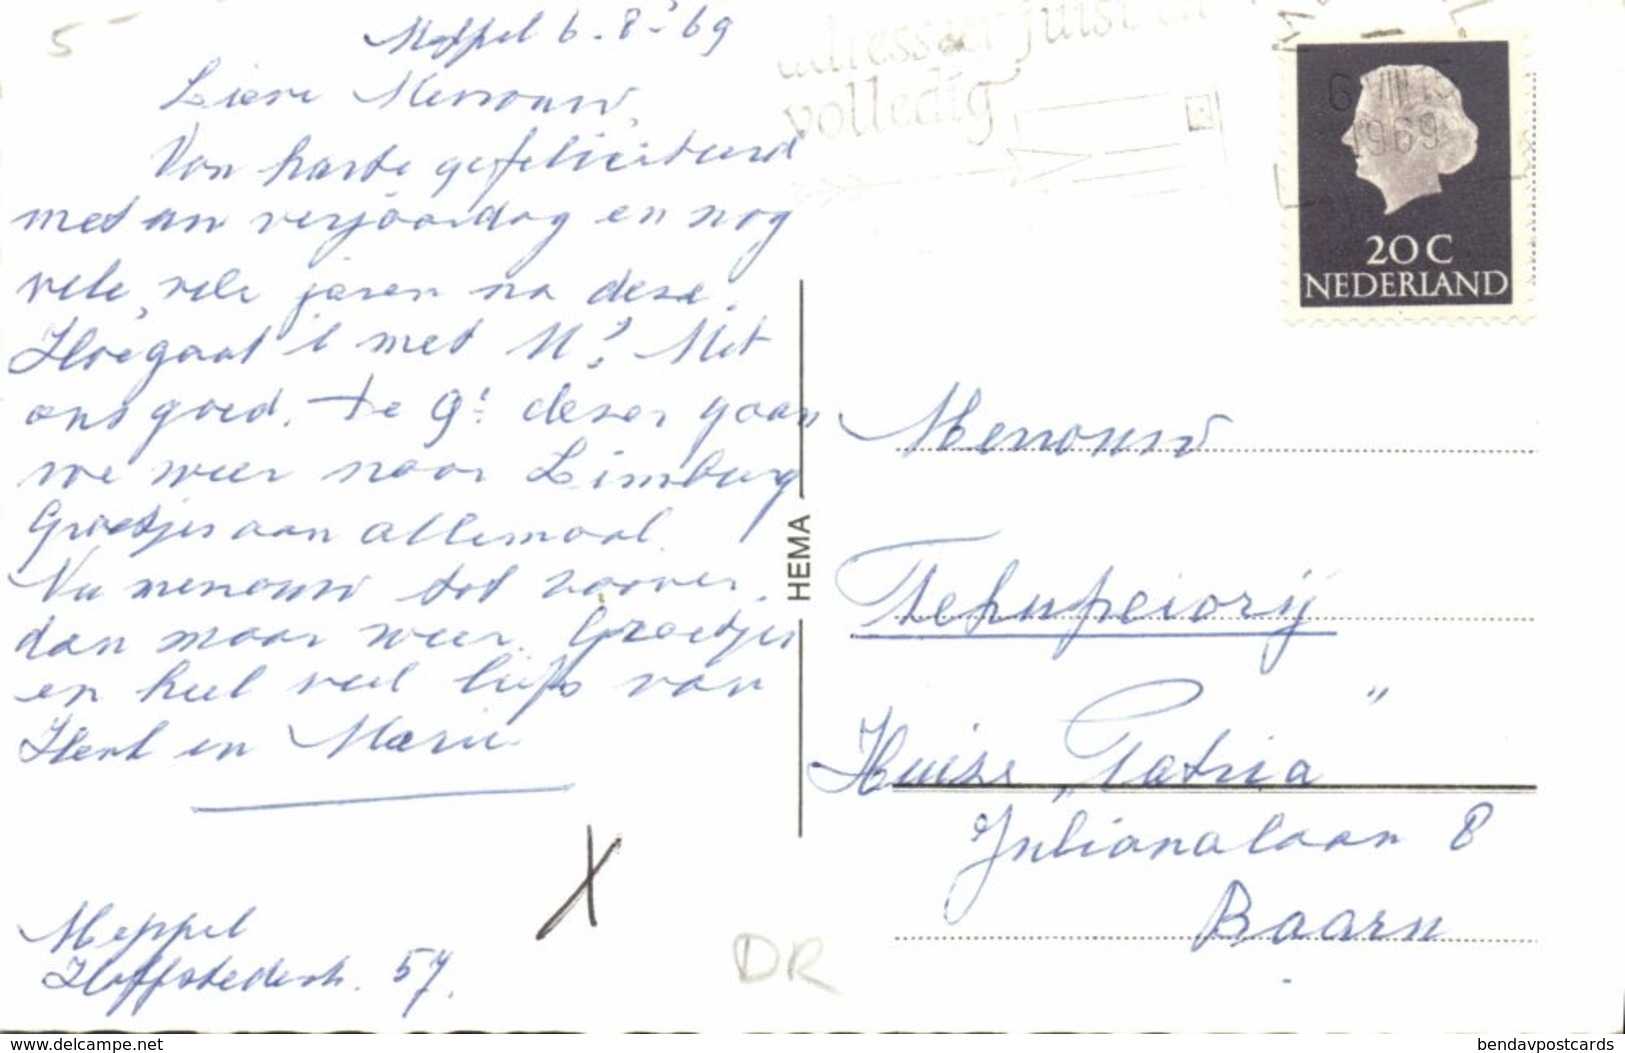 5-
Meppel 6-8-'69
Lieve Mevrouw,
Van harte gefeliciteerd
met uw verjaardag en nog
vele, vele jaren na deze.
Hoe gaat 't met U? Met
ons goed. De 9e dezer gaan
we weer naar Limburg
Groetjes aan allemaal.
Nu mevrouw tot zoover,
dan maar weer. Groetjes
en heel veel liefs van
Henk en Marie
Meppel
57.
X
DR
HEMA
adresseer juist en
volledig
6 VIII 15
1969
20 C
NEDERLAND
Mevrouw
Huize „Patria”
Julianalaan 8
Baarn
delcampe.net
bendavpostcards